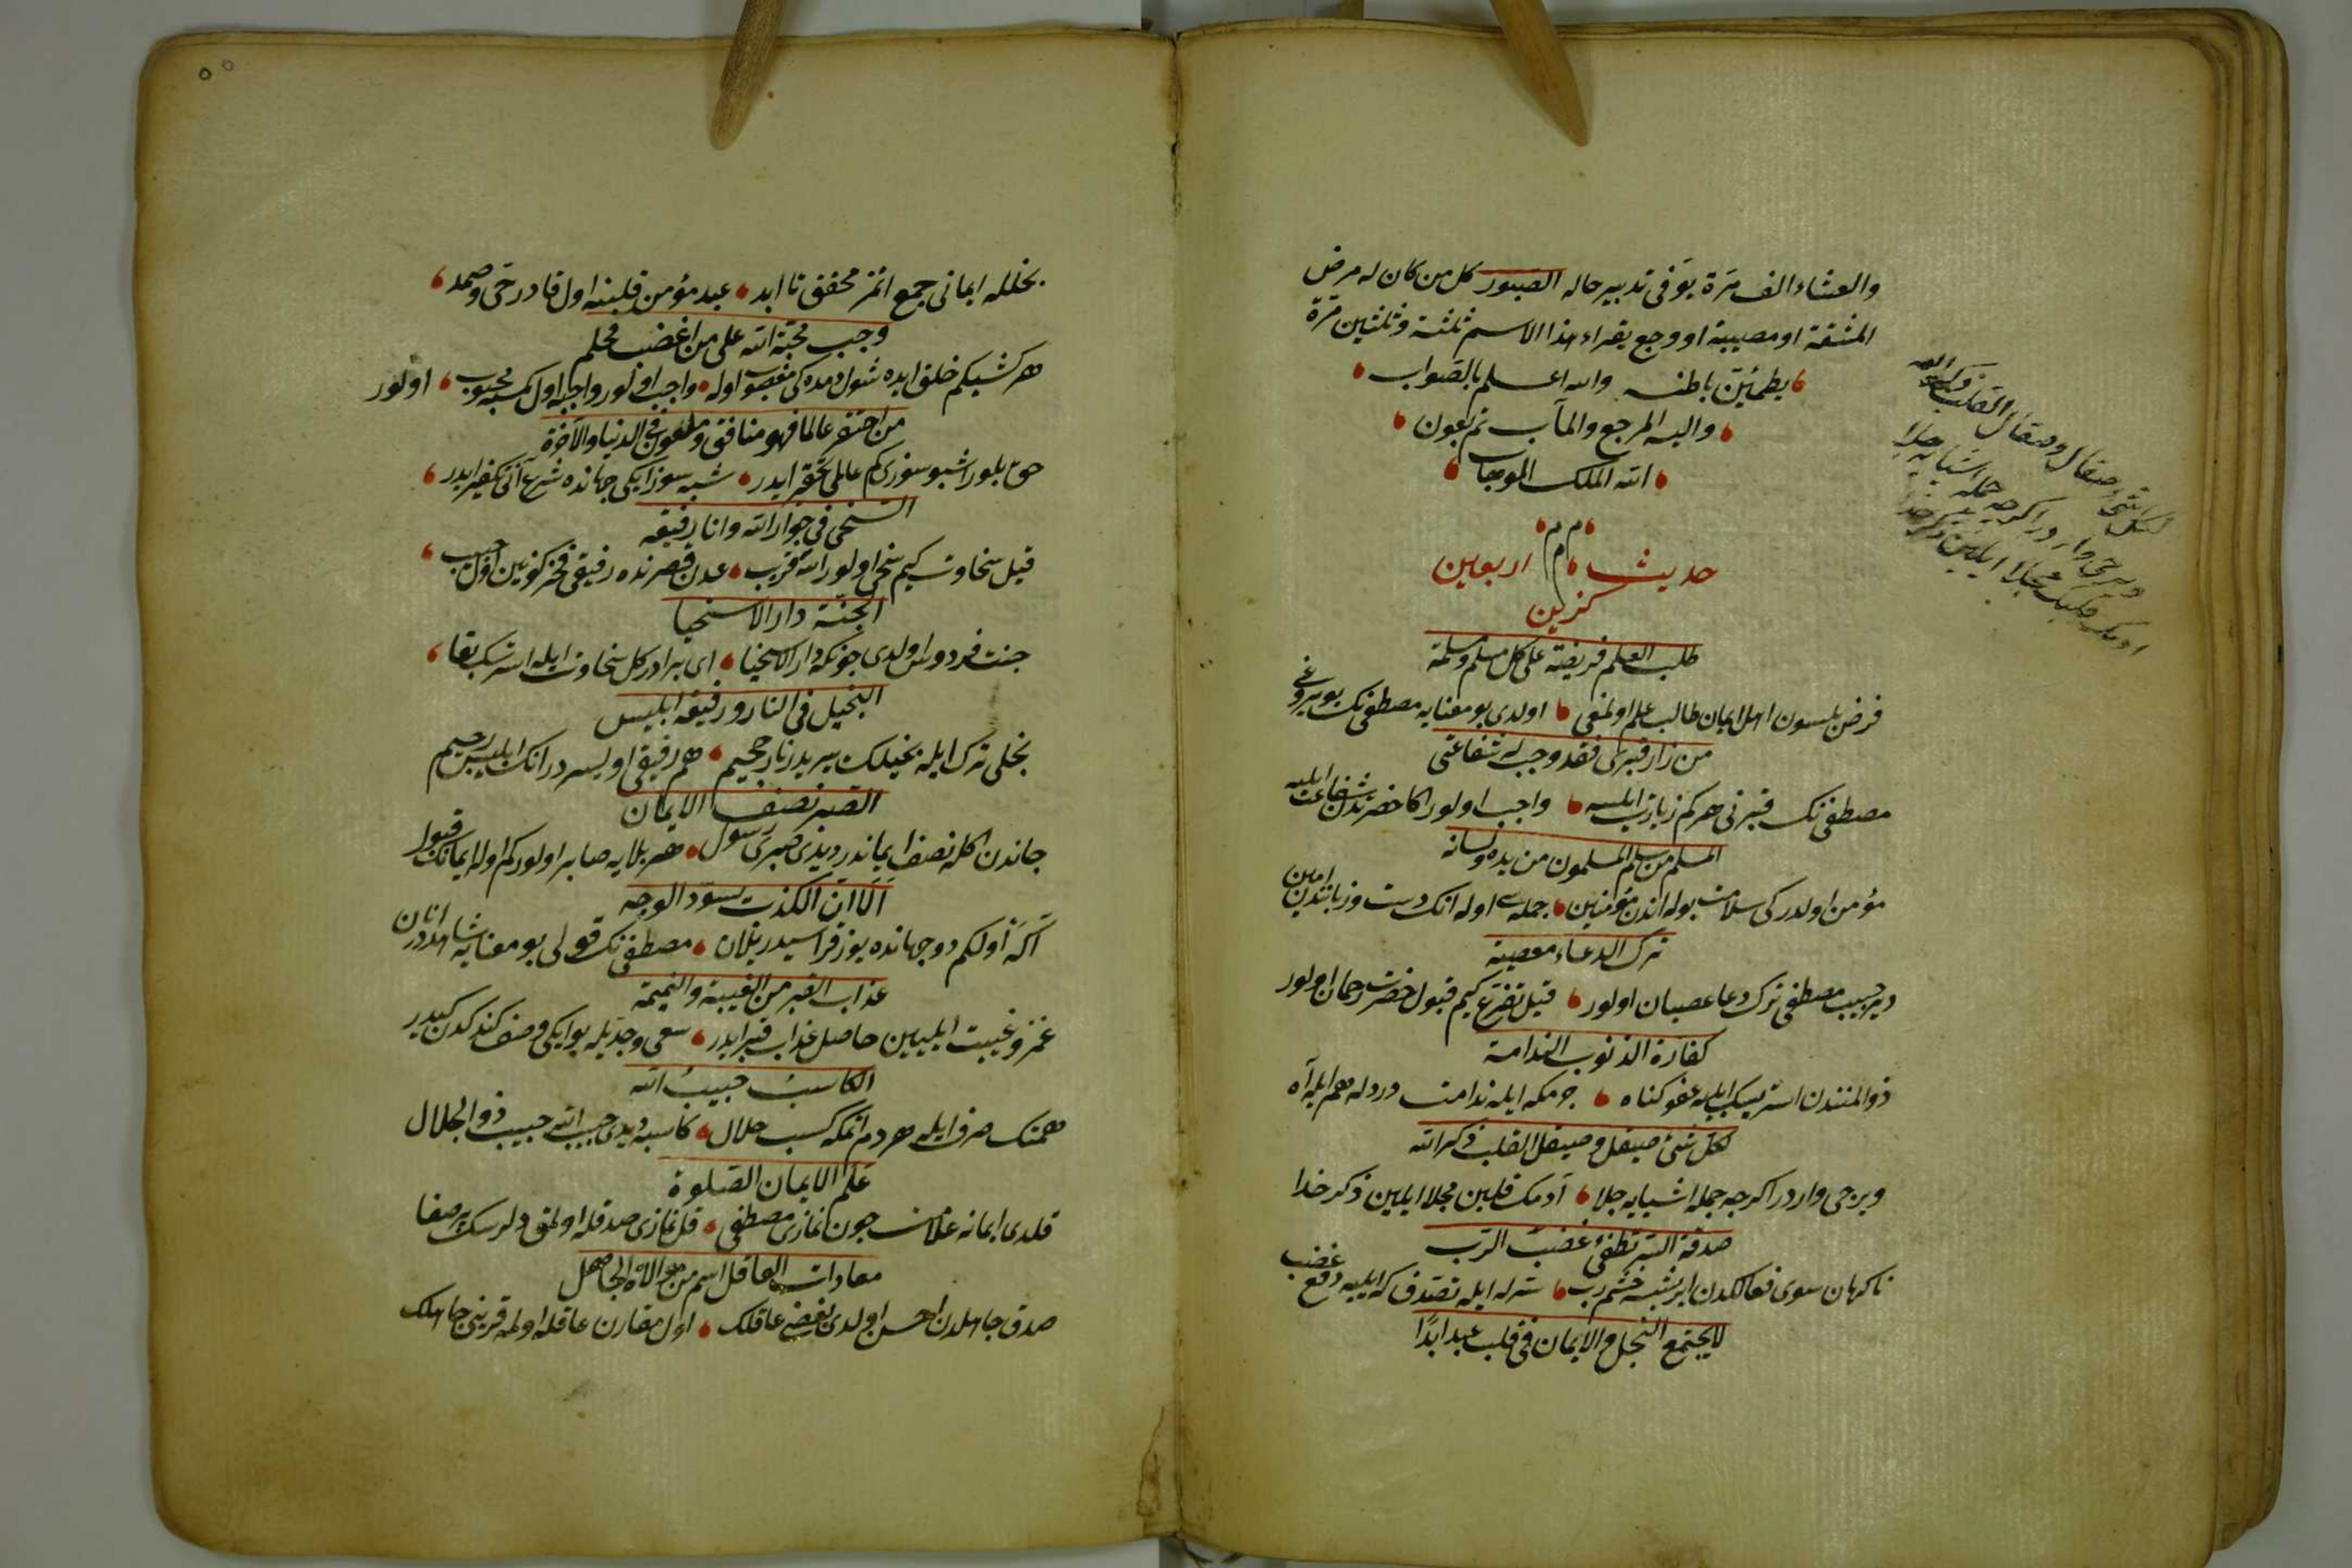 والعشاء الف مرّة يوَفى تدبير حاله الصبور كل من كان له مرض
المشقة او مصيبة او وجع يقراء هذا الاسم ثلثة وثلثين مرّة
يطمئنّ باطنه والله اعلم بالصواب
واليه المرجع والمآب
الله الملك
حديث اربعين
طلب العلم فريضة على كل مسلم ومسلمة
فرض بلسون اهل ايمان طالب علم اولمغى اولدى بو معنايه مصطفى نك بويروغى
من زار قبرى فقد وجب له شفاعتى
مصطفى نك قبرنى هركم زيارت ايلسه واجب اولور اكا حضرتدن شفاعت ايليه
المسلم من سلم المسلمون من يده ولسانه
مؤمن اولدركى سلامت بوله اندن مؤمنين جمله سى اوله انك دست وزبانندن امين
ترك الدعاء معصية
دير حبيب مصطفى ترك دعا عصيان اولور قيل تضرع كيم قبول حضرت رحمان اولور
كفارة الذنوب الندامة
ذوالمنندن استر ايسك ايليه عفو كناه جرمكه ايله ندامت دردله هم ايله آه
لكل شئ صيقل وصيقل القلب ذكر الله
ويرجى واردر اكرچه جمله اشيايه جلا آدمك قلبين مجلا ايلين ذكر خدا
صدقة السر تطفئ غضب الرب
ناكهان سوى فعالكدن ايرشسه خشم رب سرله ايله تصدق كه ايليه دفع غضب
لا يجتمع البخل والايمان فى قلب عبد ابدًا
لكل شئ صقال وصقال القلب ذكر الله
ويرجى واردر اكرچه جمله اشيايه جلا
ادمك قلبين مجلا ايلين ذكر خدا
بخلله ايمانى جمع اتمز محقق تا ابد عبد مؤمن قلبنه اول قادر حى وصمد
وجبت محبة الله على من اغضب فحلم
هركشيكم خلق ايده شول دمده كى مغضوب اوله واجب اولور واجبه اول كمسه محبوب اولور
من احتقر عالما فهو منافق وملعون فى الدنيا والآخرة
حق بلور اشبو سوزى كم عالمى تحقير ايدر شبه سوز ايكى جهانده شرع آنى تكفير ايدر
السخى فى جوار الله وانا رفيقه
قيل سخاوت كيم سخى اولور الله قريب عدن قصرنده رفيقى فخر كونين اول حبيب
الجنة دار الاسخيا
جنت فردوس اولدى چونكه دار الاسخيا اى برادر كل سخاوت ايله استرسك بقا
البخيل فى النار ورفيقه ابليس
بخلى ترك ايله بخيلك يريدر نار جحيم هم رفيقى اوليسردر انك ابليس رجيم
الصبر نصف الايمان
جاندن اكله نصف ايماندر ديدى صبرى رسول هر بلايه صابر اولوركم اوله ايمانك قبول
اَلا ان الكذب يسوّد الوجه
اكه اولكم دو جهانده يوز قراسيدر يلان مصطفى نك قولى بو معنايه شاهددر انان
عذاب القبر من الغيبة والنميمة
غمز وغيبت ايليين حاصل عذاب قبر ايدر سعى وجدّيله بو ايكى وصف كندكدن كيدر
الكاسب حبيب الله
همتك صرف ايله هر دم اتمكه كسب حلال كاسبه ديدى حبيب الله حبيب ذو الجلال
علم الايمان الصلوة
قلدى ايمانه علامت چون نمازى مصطفى قل نمازى صدقله اولمق دلرسك پر صفا
معادات العاقل اسم من موالاة الجاهل
صدق جاهلدن احسن اولدى بغضى عاقلك اول مقارن عاقله اولمه قرينى جاهلك